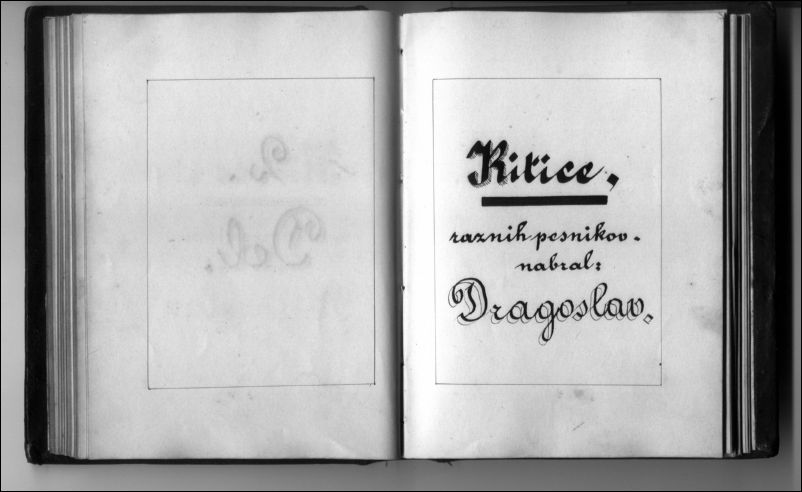 Kitice,
raznih pesnikov.
nabral:
Dragoslav.